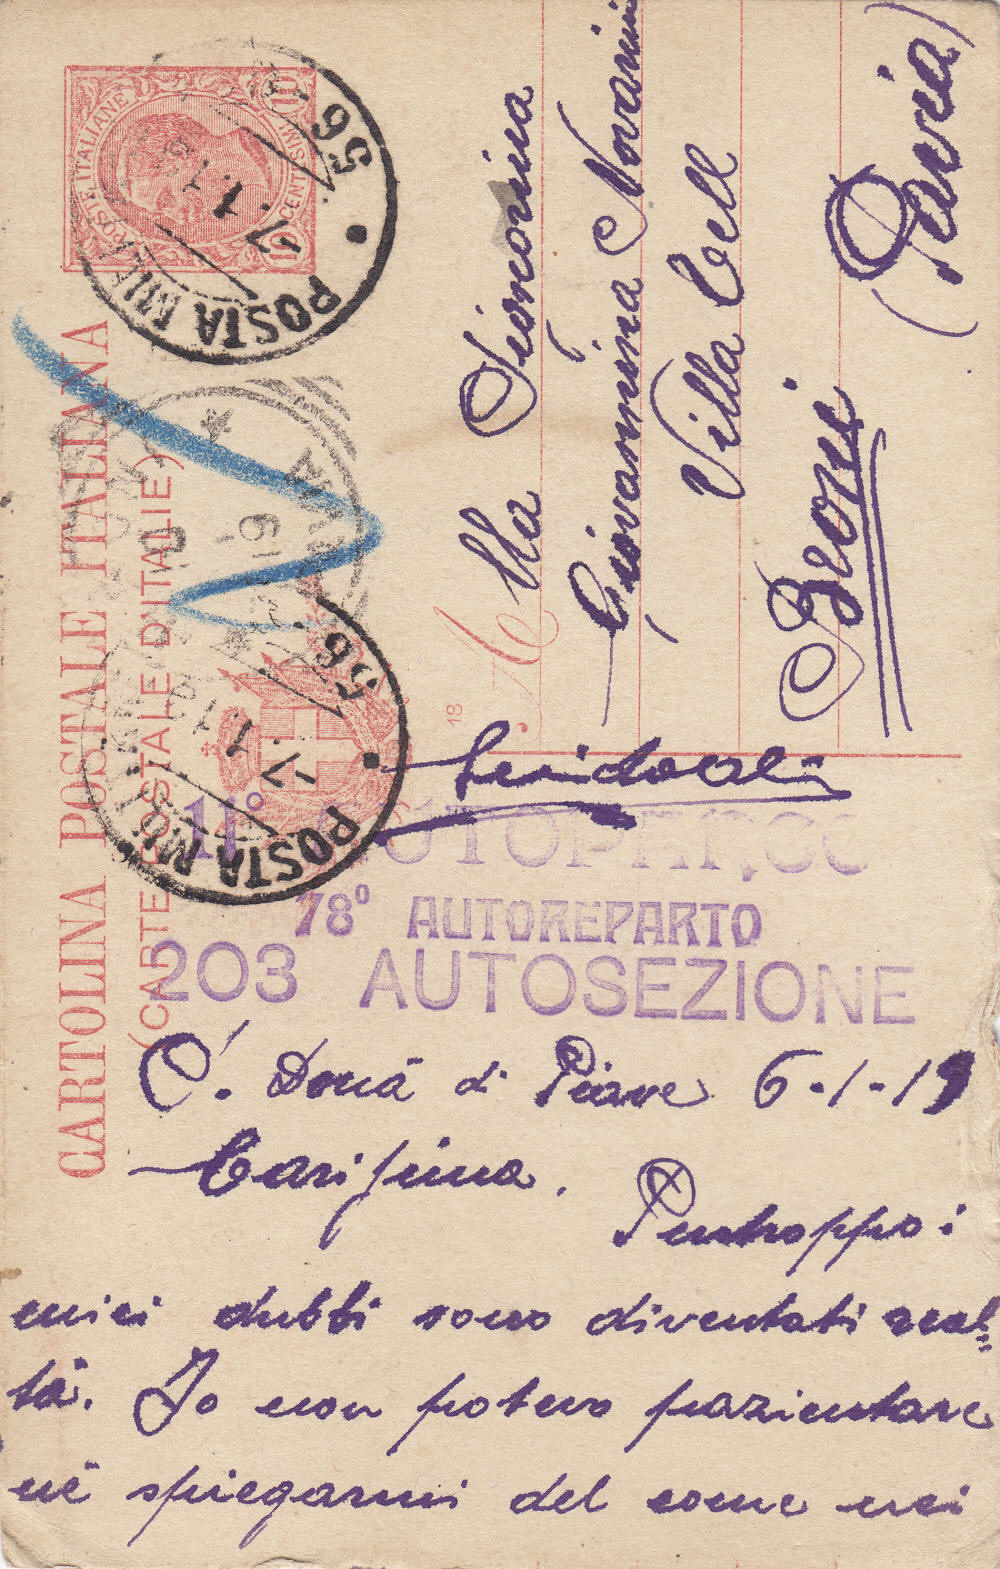 CARTOLINA POSTALE ITALIANA
(CARTE POSTALE D'ITALIE)
POSTE ITALIANE
10 CENTESIMI 10
POSTA MILITARE
56
7.1.19
POSTA MILITARE
56
7.1.19
18
M
Alla Signorina
Giovannina Novarini
Villa Cell
Broni
(Pavia)
11° AUTOPARCO
78° AUTOREPARTO
203 AUTOSEZIONE
S. Donà di Piave 6-1-19
Carissima.
Purtroppo i
miei dubbi sono diventati real=
tà. Io non potevo pazientare
nè spiegarmi del come mi